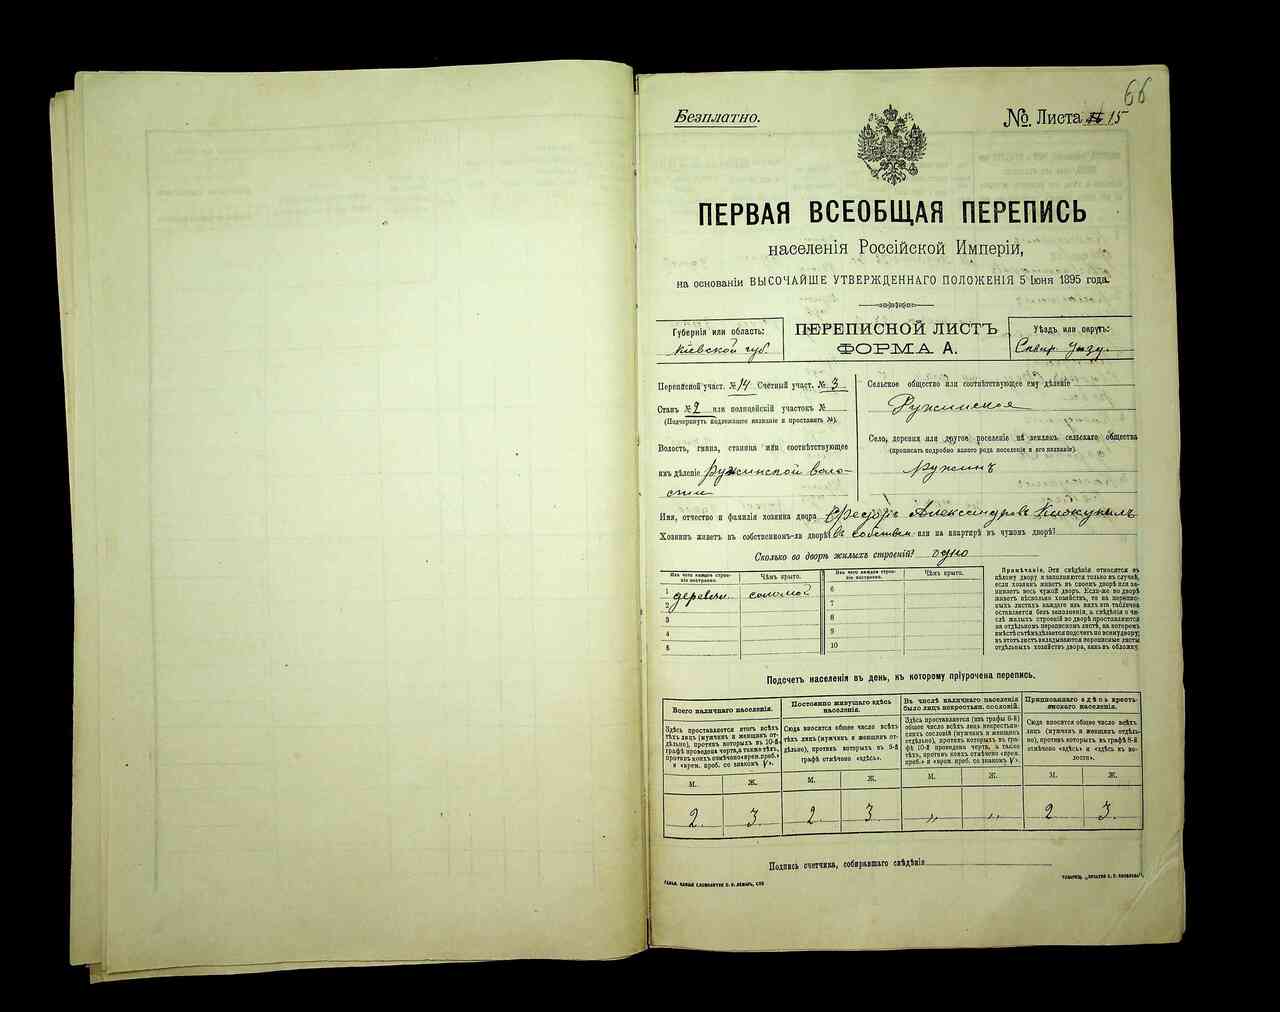 66
Безплатно.
№ Листа 15
ПЕРВАЯ ВСЕОБЩАЯ ПЕРЕПИСЬ
населенія Россійской Имперіи,
на основаніи ВЫСОЧАЙШЕ УТВЕРЖДЕННАГО ПОЛОЖЕНІЯ 5 Іюня 1895 года.
Губернія или область:
Кіевской губ.
ПЕРЕПИСНОЙ ЛИСТЪ
ФОРМА А.
Уѣздъ или округъ:
Сквир. уѣзд.
Переписной участ. № 14 Счётный участ. № 3
Станъ № 2 или полицейскій участокъ №
(Подчеркнуть подлежащее названіе и проставить №).
Волость, гмина, станица или соотвѣтствующее
имъ дѣленіе Ружинской воло-
сти
Сельское общество или соотвѣтствующее ему дѣленіе
Ружинское
Село, деревня или другое поселеніе на земляхъ сельскаго общества
(прописать подробно какого рода поселеніе и его названіе).
Ружинъ
Имя, отчество и фамилія хозяина двора Ѳеодоръ Александровъ
Хозяинъ живетъ въ собственномъ-ли дворѣ? въ собствен или на квартирѣ въ чужомъ дворѣ?
Сколько во дворѣ жилыхъ строеній? одно
Изъ чего каждое строе-
ніе построено.
Чѣмъ крыто.
1 деревян. соломой
2
3
4
5
Изъ чего каждое строе-
ніе построено.
Чѣмъ крыто.
6
7
8
9
10
Примѣчаніе. Эти свѣдѣнія относятся къ
цѣлому двору и заполняются только въ случаѣ,
если хозяинъ живетъ въ своемъ дворѣ или за-
нимаетъ весь чужой дворъ. Если-же во дворѣ
живетъ нѣсколько хозяйствъ, то на перепис-
ныхъ листахъ каждаго изъ нихъ эта табличка
оставляется безъ заполненія, а свѣдѣнія о чи-
слѣ жилыхъ строеній во дворѣ проставляются
на отдѣльномъ переписномъ листѣ, на которомъ
вмѣстѣ съ тѣмъ дѣлается подсчетъ по всему двору;
въ этотъ листъ вкладываются переписные листы
отдѣльныхъ хозяйствъ двора, какъ въ обложку.
Подсчетъ населенія въ день, къ которому пріурочена перепись.
Всего наличнаго населенія.
Здѣсь проставляется итогъ всѣхъ
тѣхъ лицъ (мужчинъ и женщинъ от-
дѣльно), противъ которыхъ въ 10-й
графѣ проведена черта, а также тѣхъ,
противъ коихъ отмѣчено «врем. проб.»
и «врем. проб. со знакомъ V».
М. Ж.
2. 3.
Постоянно живущаго здѣсь
населенія.
Сюда вносится общее число всѣхъ
тѣхъ лицъ (мужчинъ и женщинъ от-
дѣльно), противъ которыхъ въ 9-й
графѣ отмѣчено «здѣсь».
М. Ж.
2. 3.
Въ числѣ наличнаго населенія
было лицъ некрестьян. сословій.
Здѣсь проставляется (изъ графы 6-й)
общее число всѣхъ лицъ некрестьян-
скихъ сословій (мужчинъ и женщинъ
отдѣльно), противъ которыхъ въ гра-
фѣ 10-й проведена черта, а также
тѣхъ, противъ коихъ отмѣчено «врем.
проб.» и «врем. проб. со знакомъ V».
М. Ж.
„ „
Приписаннаго здѣсь кресть-
янскаго населенія.
Сюда вносится общее число всѣхъ
лицъ (мужчинъ и женщинъ отдѣль-
но), противъ которыхъ въ графѣ 8-й
отмѣчено «здѣсь» и «здѣсь въ во-
лости».
М. Ж.
2 3.
Подпись счетчика, собиравшаго свѣдѣнія